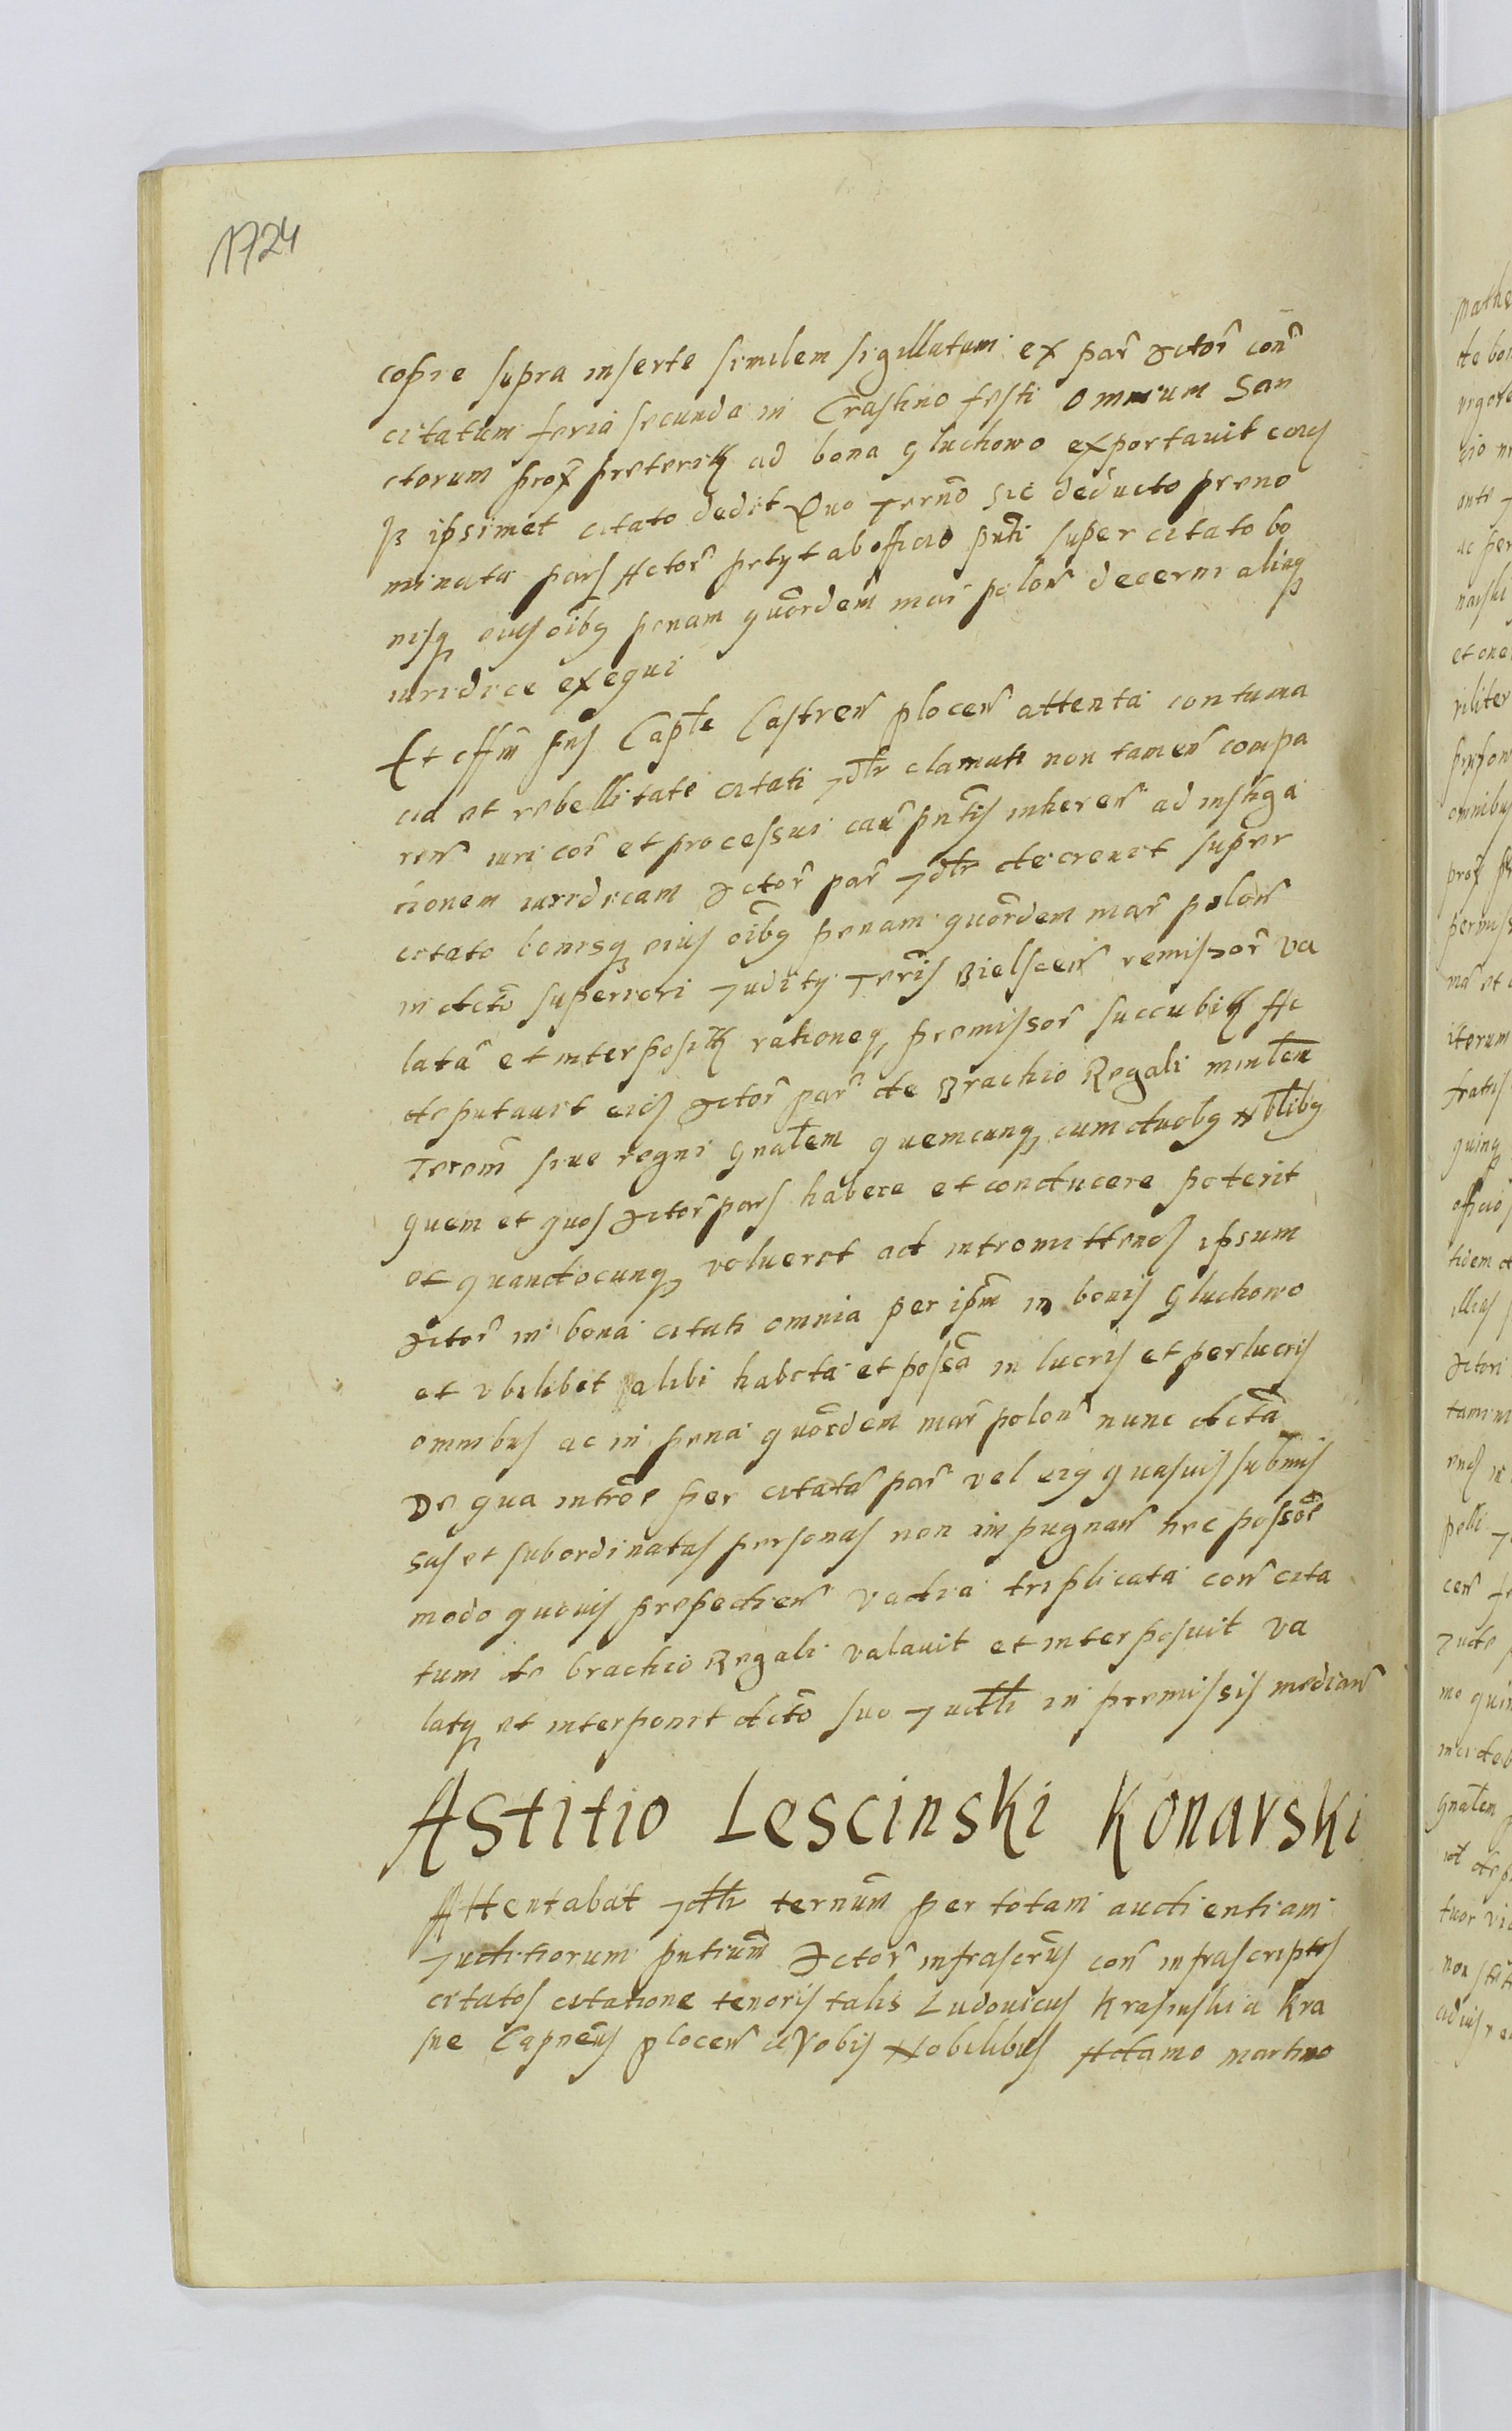 1724
copie supra inserte similem sigillatam ex par Actor con
citatum feria secunda in Crastino festi Omnium San
ctorum prox preterit ad bona Gluchowo exportavit easq
ipsimet citato dedit Quo Termno sic deducto preno
minata pars Actor petyt ab officio pnti super citato bo
nisq eius oibq penam quordem mar polon decerni aliaq
iuridice exequi
Et offm pns Capte Castren plocen attenta contuma
cia et rebellitate citati Jdtr clamati non tamen compa
ren iuri coi et processui cau pntis inheren ad instiga
cionem iuridicam Actor par Jdtr decrevit super
citato bonisq eius oibq penam quordem mar polon
in dcto superiori Judity Terris Bielscen remissor va
lata et interposit rationeq premissor succubit Ac
deputavit eid Actor par de Brachio Regali minlem
Terrem sive regni Gnalem quemcunq cum duobq Nblibq
quem et quos Actor pars habere et conducere poterit
et quandocunq voluerit ad intromittend ipsum
Actor in bona citati omnia per ipm in bonis Gluchowo
et ubilibet alibi habita et possa in lucris et perlucris
omnibus ac in pena quordem mar polon nunc dcta
De qua introe per citata par vel eiq quasvis submis
sas et subordinatas personas non impugnan nec possoe
modo quovis prepedien vadia triplicata con cita
tum de brachio Regali valavit et interposuit va
latq et interponit dcto suo Judtli in premissis median
Astitio Lescinski Konarski
Attentabat Jdtli ternum per totam audientiam
Juditiorum pntium Actor infrascrus con infrascriptos
citatos citatione tenoris talis Ludovicus Krasinski a Kra
sne Capneus plocen Vobis Nobilibus Adamo Martino